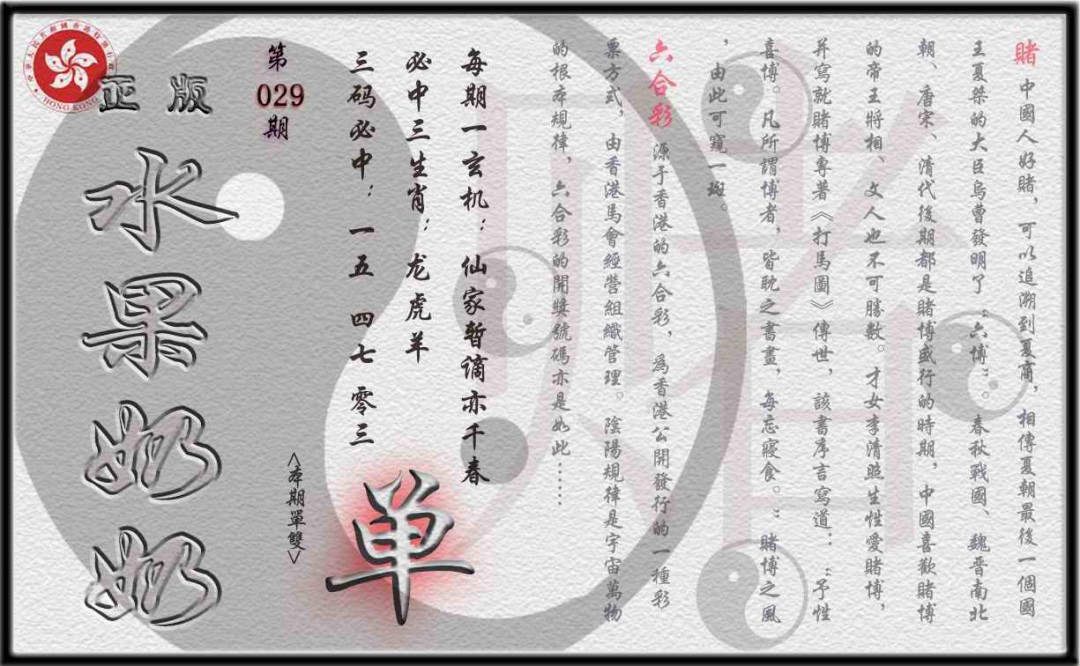 賭 中國人好賭，可以追溯到夏商，相傳夏朝最後一個國
王夏桀的大臣烏曹發明了“六博”。春秋戰國、魏晉南北
朝、唐宋、清代後期都是賭博盛行的時期，中國喜歡賭博
的帝王將相、文人也不可勝數。才女李清照生性愛賭博，
并寫就賭博專著《打馬圖》傳世，該書序言寫道：“予性
喜博。凡所謂博者，皆耽之書畫，每忘寢食。”賭博之風
，由此可窺一斑。
六合彩 源于香港的六合彩，為香港公開發行的一種彩
票方式，由香港馬會經營組織管理。陰陽規律是宇宙萬物
的根本規律，六合彩的開獎號碼亦是如此……
每期一玄机：仙家暂谪亦千春
必中三生肖：龙虎羊
三码必中：一五 四七 零三
单
<本期單雙>
第
029
期
正版
水果奶奶
HONG KONG